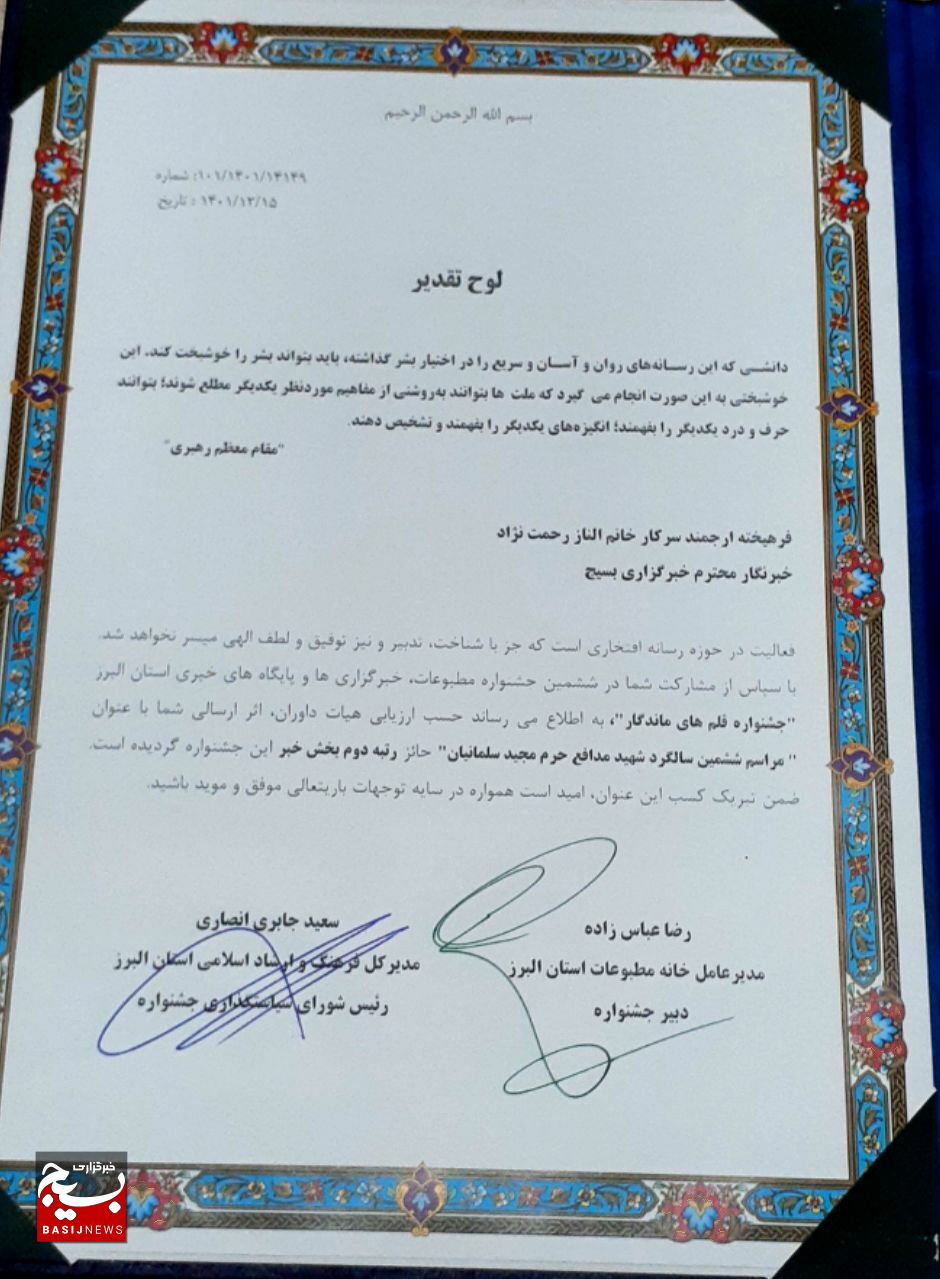 بسم الله الرحمن الرحیم
۱۰۱/۱۴۰۱/۱۴۱۴۹: شماره
۱۴۰۱/۱۲/۱۵ : تاریخ
لوح تقدیر
دانشـی که این رسـانه‌های روان و آسـان و سریع را در اختیار بشر گذاشته، باید بتواند بشر را خوشبخت کند. این
خوشبختی به این صورت انجام می گیرد که ملت ها بتوانند به‌روشنی از مفاهیم موردنظر یکدیگر مطلع شوند؛ بتوانند
حرف و درد یکدیگر را بفهمند؛ انگیزه‌های یکدیگر را بفهمند و تشخیص دهند.
"مقام معظم رهبری"
فرهیخته ارجمند سرکار خانم الناز رحمت نژاد
خبرنگار محترم خبرگزاری بسیج
فعالیت در حوزه رسانه افتخاری است که جز با شناخت، تدبیر و نیز توفیق و لطف الهی میسر نخواهد شد.
با سپاس از مشارکت شما در ششمین جشنواره مطبوعات، خبرگزاری ها و پایگاه های خبری استان البرز
"جشنواره قلم های ماندگار"، به اطلاع می رساند حسب ارزیابی هیات داوران، اثر ارسالی شما با عنوان
" مراسم ششمین سالگرد شهید مدافع حرم مجید سلمانیان" حائز رتبه دوم بخش خبر این جشنواره گردیده است.
ضمن تبریک کسب این عنوان، امید است همواره در سایه توجهات باریتعالی موفق و موید باشید.
رضا عباس زاده
مدیرعامل خانه مطبوعات استان البرز
دبیر جشنواره
سعید جابری انصاری
مدیرکل فرهنگ و ارشاد اسلامی استان البرز
رئیس شورای سیاستگذاری جشنواره
خبرگزاری
بسیج
BASIJNEWS